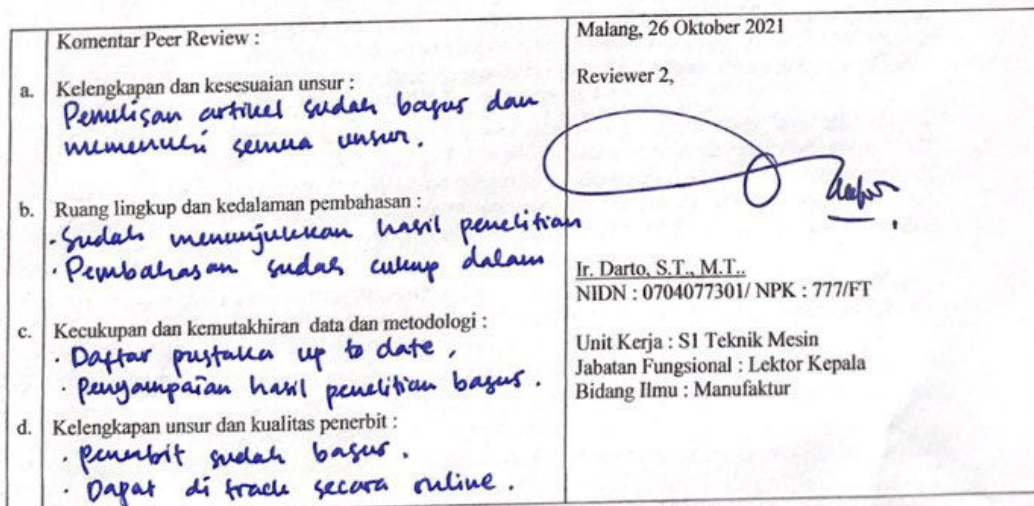 Komentar Peer Review :
a. Kelengkapan dan kesesuaian unsur :
Penulisan artikel sudah bagus dan
memenuhi semua unsur.
b. Ruang lingkup dan kedalaman pembahasan :
· Sudah menunjukkan hasil penelitian
· Pembahasan sudah cukup dalam
c. Kecukupan dan kemutakhiran data dan metodologi :
· Daftar pustaka up to date,
· Penyampaian hasil penelitian bagus.
d. Kelengkapan unsur dan kualitas penerbit :
· Penerbit sudah bagus.
· Dapat di track secara online.
Malang, 26 Oktober 2021
Reviewer 2,
Ir. Darto, S.T., M.T..
NIDN : 0704077301/ NPK : 777/FT
Unit Kerja : S1 Teknik Mesin
Jabatan Fungsional : Lektor Kepala
Bidang Ilmu : Manufaktur